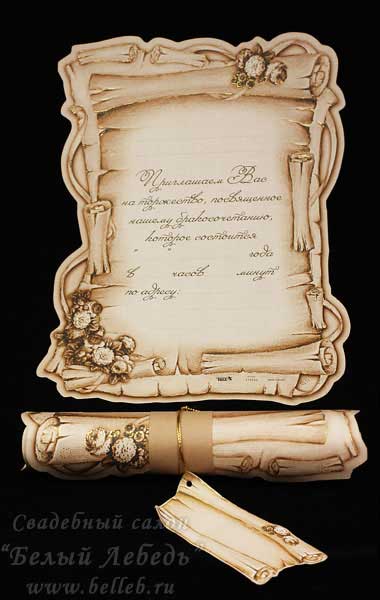 Приглашаем Вас
на торжество, посвященное
нашему бракосочетанию,
которое состоится
" " года
в часов минут
по адресу:
Свадебный салон
"Белый Лебедь"
www.belleb.ru